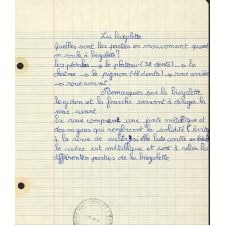 La bicyclette
Quelles sont les parties en mouvement quand
on roule à bicyclette ?
les pédales → le plateau (38 dents) → la
chaîne → le pignon (18 dents) → roue arrière
→ roue avant
Remarques sur la bicyclette
le guidon et la fourche servent à diriger la
roue avant
La roue comprend une jante métallique et
des rayons qui renforcent la solidité
à la roue de
le cadre est métallique et sert à relier les
différentes parties de la bicyclette